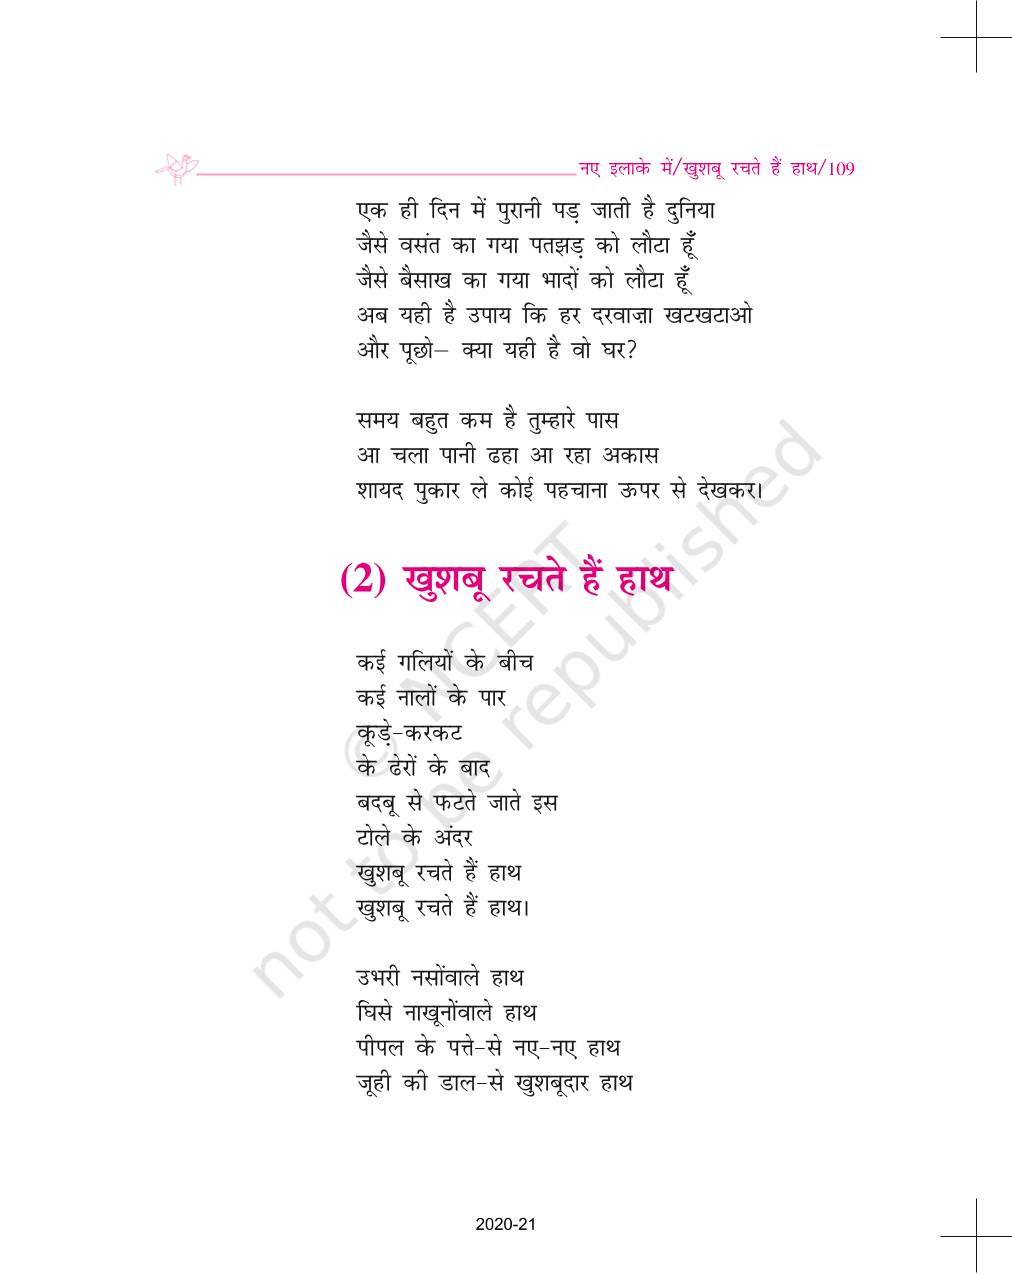 नए इलाके में/खुशबू रचते हैं हाथ/109
एक ही दिन में पुरानी पड़ जाती है दुनिया
जैसे वसंत का गया पतझड़ को लौटा हूँ
जैसे बैसाख का गया भादों को लौटा हूँ
अब यही है उपाय कि हर दरवाज़ा खटखटाओ
और पूछो– क्या यही है वो घर?
समय बहुत कम है तुम्हारे पास
आ चला पानी ढहा आ रहा अकास
शायद पुकार ले कोई पहचाना ऊपर से देखकर।
(2) खुशबू रचते हैं हाथ
कई गलियों के बीच
कई नालों के पार
कूड़े-करकट
के ढेरों के बाद
बदबू से फटते जाते इस
टोले के अंदर
खुशबू रचते हैं हाथ
खुशबू रचते हैं हाथ।
उभरी नसोंवाले हाथ
घिसे नाखूनोंवाले हाथ
पीपल के पत्ते-से नए-नए हाथ
जूही की डाल-से खुशबूदार हाथ
© NCERT
not to be republished
2020-21